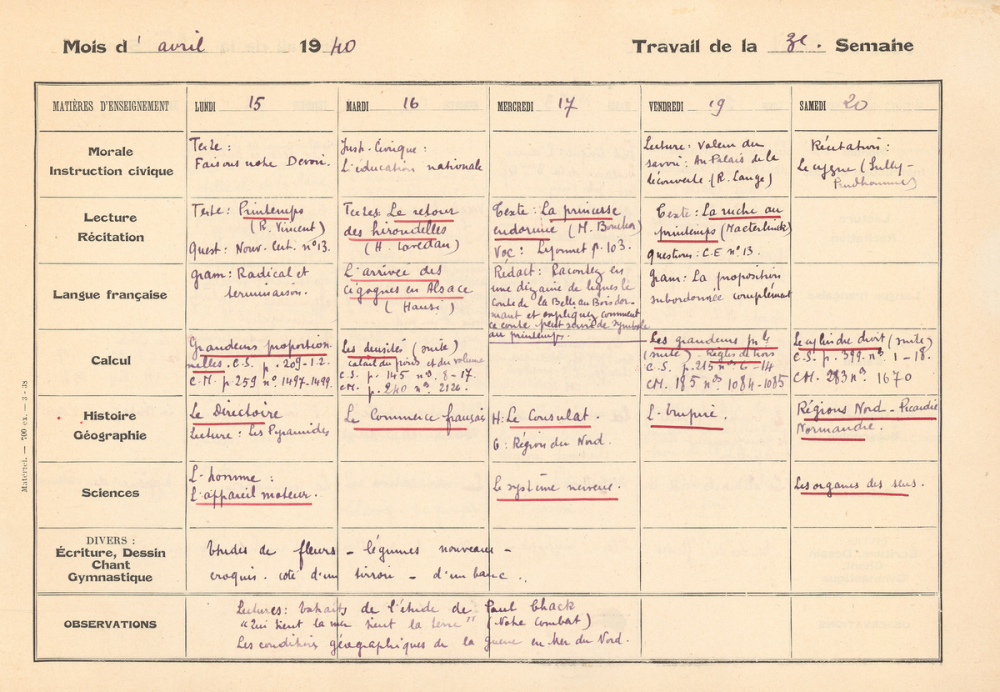 Mois d' avril 1940
Travail de la 3e. Semaine
MATIÈRES D'ENSEIGNEMENT
LUNDI 15
MARDI 16
MERCREDI 17
VENDREDI 19
SAMEDI 20
Morale
Instruction civique
Texte :
Faisons notre Devoir.
Inst. Civique :
L'éducation nationale
Lecture : Valeur du
savoir : Au Palais de la
découverte (R. Lange)
Récitation :
Le cygne (Sully-
Prudhomme)
Lecture
Récitation
Texte : Printemps
(R. Vincent)
Quest : Nouv. Cert. n° 13.
Textes : Le retour
des hirondelles
(H. Lavedan)
Texte : La princesse
endormie (M. Bouchor)
Voc : Lyonnet p. 103.
Texte : La ruche au
printemps (Maeterlinck)
questions : C.E n° 13.
Langue française
gram : Radical et
terminaison.
L'arrivée des
cigognes en Alsace
(Hansi)
Rédact : Racontez en
une dizaine de lignes le
conte de la Belle au Bois dor-
mant et expliquez comment
ce conte peut servir de symbole
au printemps.
Gram : La proposition
subordonnée complément
Calcul
Grandeurs proportion-
nelles. C.S. p. 209-1.2.
C.M. p 259 n° 1497-1499.
Les densités (suite)
Calcul du poids et du volume
C.S. p. 145 nos 8-17.
CM. p. 240 nos 2126.
Les grandeurs
(suite) - Règles de trois
C.S. p. 215 nos 6-14
CM. 185 nos 1084-1085
Le cylindre droit (suite)
C.S. p. 399. nos 1-18.
CM. 283 nos 1670
Histoire
Géographie
Le Directoire
Lecture : Les Pyramides
Le Commerce français
H : Le Consulat.
G : Région du Nord.
L'Empire.
Régions Nord - Picardie
Normandie.
Sciences
L'homme :
L'appareil moteur.
Le système nerveux.
Les organes des sens.
DIVERS :
Écriture, Dessin
Chant
Gymnastique
Etudes de fleurs - légumes nouveaux -
croquis. coté d'un tiroir - d'un banc..
OBSERVATIONS
Lectures : Extraits de l'étude de Paul Chack
"Qui tient la mer tient la terre" (Notre Combat)
Les conditions géographiques de la guerre en Mer du Nord.
Matériel. — 700 ex. — 3 - 38